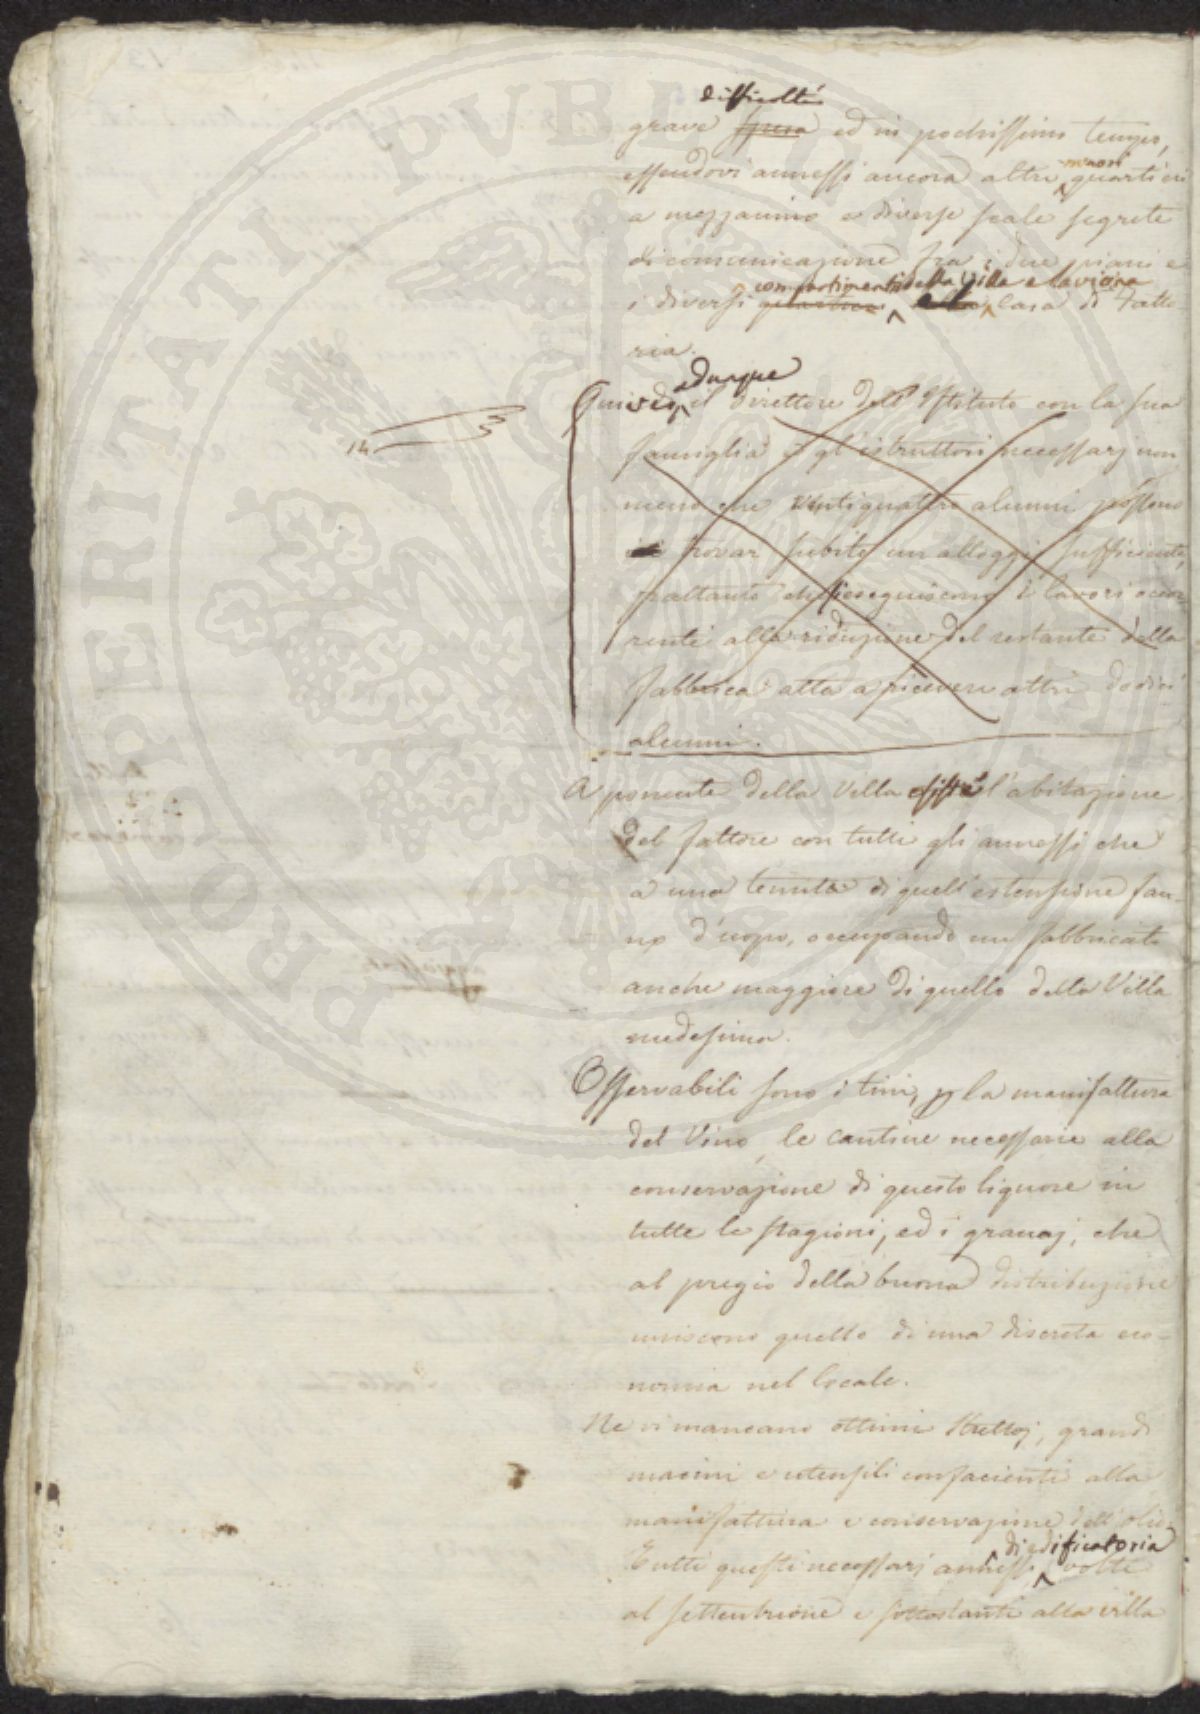 difficoltà
grave spesa ed in pochissimo tempo,
minori
essendovi annessi ancora altri quartieri
a mezzanino e diverse scale segrete
di comunicazione fra i due piani e
compartimenti della Villa e la vicina
i diversi quartieri e la casa di Fatto-
ria.
adunque
Quindi il Direttore dell'Istituto con la sua
14
famiglia e gl'istruttori necessarj non
meno che ventiquattro alunni possono
trovar subito un alloggio sufficiente,
frattanto che si eseguiscono i lavori occor-
renti alla riduzione del restante della
fabbrica atta a ricevere altri dodici
alunni.
A ponente della Villa esiste l'abitazione
del fattore con tutti gli annessi che
a una tenuta di quell'estensione fan-
no d'uopo, occupando un fabbricato
anche maggiore di quello della Villa
medesima.
Osservabili sono i tini, p la manifattura
del Vino, le cantine necessarie alla
conservazione di questo liquore in
tutte le stagioni, ed i granaj, che
al pregio della buona distribuzione
uniscono quello di una discreta eco-
nomia nel locale.
Ne vi mancano ottimi Strettoj, grandi
macini e utensili confacienti alla
manifattura e conservazione dell'olio.
di edificatoria
Tutti questi necessarj annessi volti
al settentrione e sottostanti alla villa
PROSPERITATI PUBLICAE